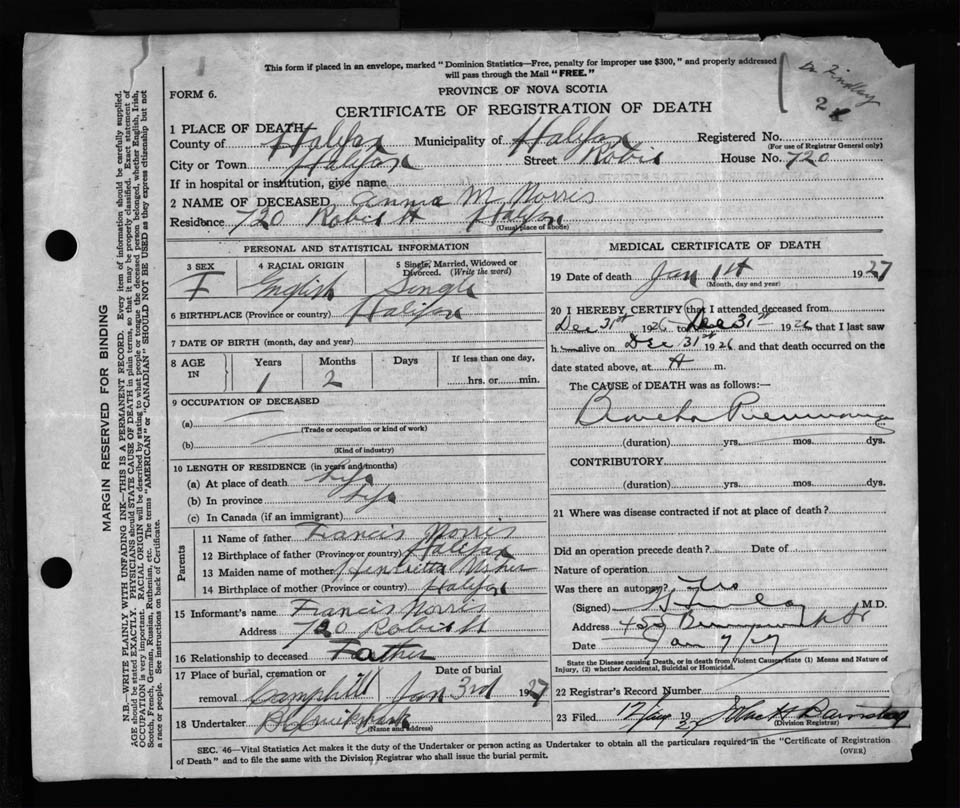 This form if placed in an envelope, marked "Dominion Statistics—Free, penalty for improper use $300," and properly addressed
will pass through the Mail "FREE."
Dr Findlay
2
FORM 6.
PROVINCE OF NOVA SCOTIA
CERTIFICATE OF REGISTRATION OF DEATH
MARGIN RESERVED FOR BINDING
N.B.—WRITE PLAINLY WITH UNFADING INK—THIS IS A PERMANENT RECORD. Every item of information should be carefully supplied.
AGE should be stated EXACTLY. PHYSICIANS should STATE CAUSE OF DEATH in plain terms, so that it may be properly classified. Exact statement of
OCCUPATION is very important. RACIAL ORIGIN will be described by stating to what people or tongue the deceased person belonged, whether English, Irish,
Scotch, French, German, Russian, Ruthenian, etc. The terms "AMERICAN" or "CANADIAN" SHOULD NOT BE USED as they express citizenship but not
a race or people. See instructions on back of Certificate.
1 PLACE OF DEATH
County of Halifax Municipality of Halifax Registered No.
(For use of Registrar General only)
City or Town Halifax Street Robie House No. 720
If in hospital or institution, give name
2 NAME OF DECEASED Annie M. Norris
Residence 720 Robie St Halifax
(Usual place of abode)
PERSONAL AND STATISTICAL INFORMATION
3 SEX 4 RACIAL ORIGIN 5 Single, Married, Widowed or Divorced. (Write the word)
F English Single
6 BIRTHPLACE (Province or country) Halifax
7 DATE OF BIRTH (month, day and year)
8 AGE IN Years Months Days If less than one day,
1 2 hrs. or min.
9 OCCUPATION OF DECEASED
(a)
(Trade or occupation or kind of work)
(b)
(Kind of industry)
10 LENGTH OF RESIDENCE (in years and months)
(a) At place of death Life
(b) In province Life
(c) In Canada (if an immigrant)
Parents
11 Name of father Francis Norris
12 Birthplace of father (Province or country) Halifax
13 Maiden name of mother Henrietta
14 Birthplace of mother (Province or country) Halifax
15 Informant's name Francis Norris
Address 720 Robie St
16 Relationship to deceased Father
17 Place of burial, cremation or Date of burial
removal Camphill Jan 3rd 1927
18 Undertaker
(Name and address)
MEDICAL CERTIFICATE OF DEATH
19 Date of death Jan 1st 1927
(Month, day and year)
20 I HEREBY CERTIFY that I attended deceased from
Dec 31st 1926 to Dec 31st 1926 that I last saw
h alive on Dec 31st 1926 and that death occurred on the
date stated above, at A m.
The CAUSE of DEATH was as follows:—
Broncho Pneumonia
(duration) yrs. mos. dys.
CONTRIBUTORY
(duration) yrs. mos. dys.
21 Where was disease contracted if not at place of death?
Did an operation precede death? Date of
Nature of operation
Was there an autopsy?
(Signed) Findlay M.D.
Address Brunswick St
Date Jan 7/27
State the Disease causing Death, or in death from Violent Causes, state (1) Means and Nature of
Injury, (2) whether Accidental, Suicidal or Homicidal.
22 Registrar's Record Number
23 Filed 17 Jany 1927
(Division Registrar)
SEC. 46—Vital Statistics Act makes it the duty of the Undertaker or person acting as Undertaker to obtain all the particulars required in the "Certificate of Registration
of Death" and to file the same with the Division Registrar who shall issue the burial permit.
(OVER)